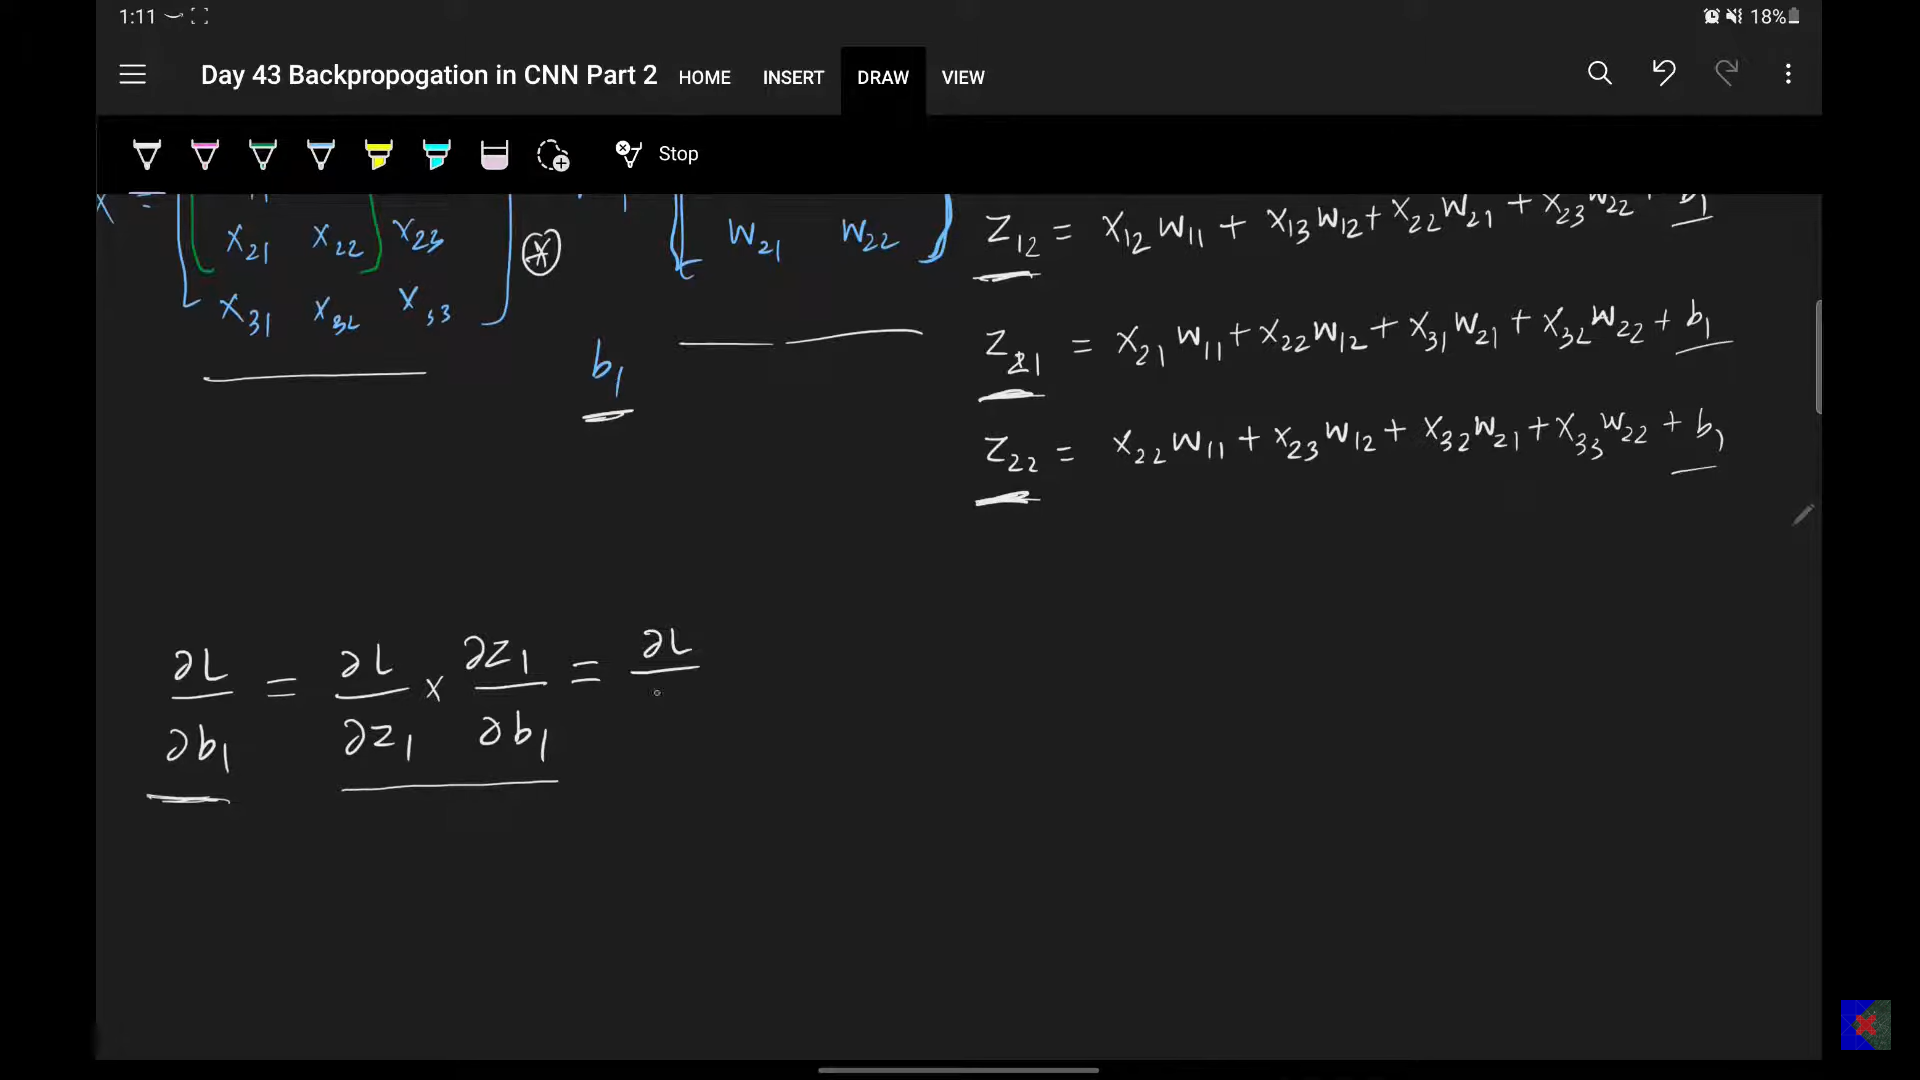 1:11 18%
Day 43 Backpropogation in CNN Part 2 HOME INSERT DRAW VIEW
Stop
X =
x₂₁ x₂₂ x₂₃
x₃₁ x₃₂ x₃₃
*
w₂₁ w₂₂
b₁
Z₁₂ = x₁₂ w₁₁ + x₁₃ w₁₂ + x₂₂ w₂₁ + x₂₃ w₂₂ + b₁
Z₂₁ = x₂₁ w₁₁ + x₂₂ w₁₂ + x₃₁ w₂₁ + x₃₂ w₂₂ + b₁
Z₂₂ = x₂₂ w₁₁ + x₂₃ w₁₂ + x₃₂ w₂₁ + x₃₃ w₂₂ + b₁
∂L/∂b₁ = ∂L/∂z₁ × ∂z₁/∂b₁ = ∂L/